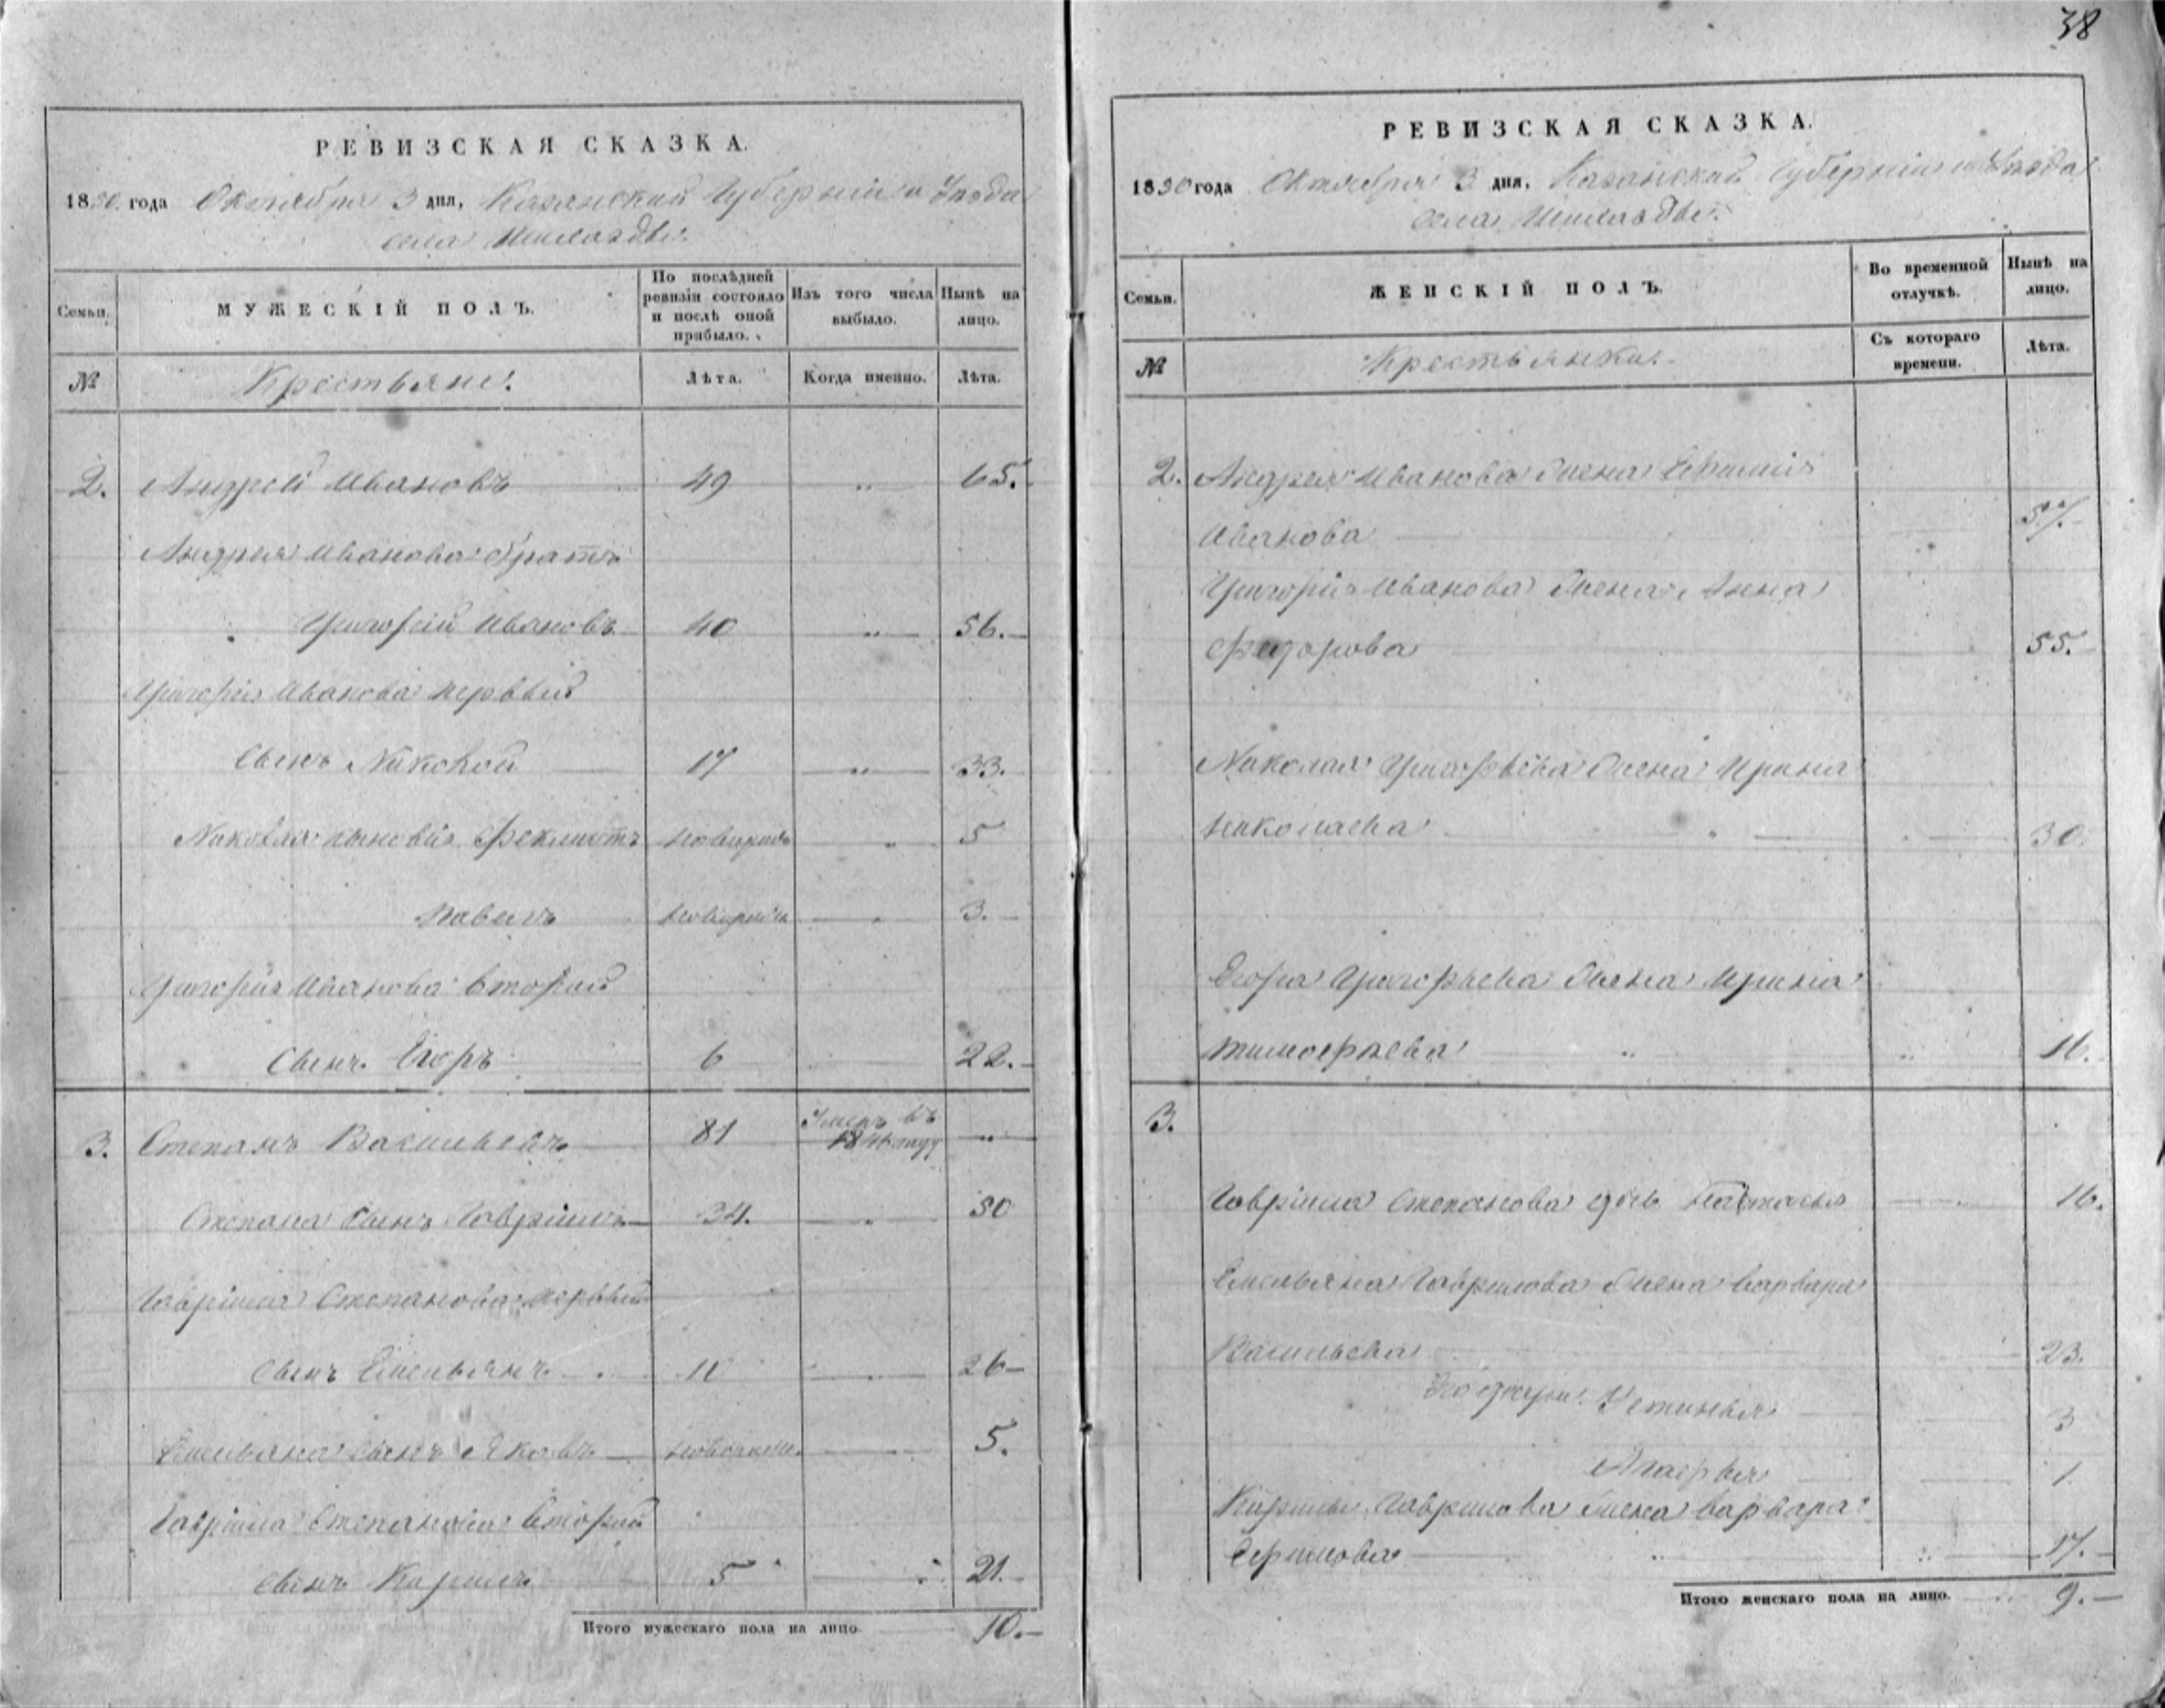 38
РЕВИЗСКАЯ СКАЗКА.
1850 года Октября 3 дня, Казанской Губерніи и Уѣзда
села
Семьи.
МУЖЕСКІЙ ПОЛЪ.
По послѣдней ревизіи состояло и послѣ оной прибыло.
Изъ того числа выбыло.
Нынѣ на лицо.
№
Крестьяне.
Лѣта.
Когда именно.
Лѣта.
2. Андрей Ивановъ 49 „ 65.
Андрея Иванова братъ
Григорій Ивановъ 40 „ 56.
Григорія Иванова первый
сынъ Николай 17 „ 33.
Николая сыновья Феклистъ новорожд „ 5
Павелъ новорожд „ 3.
Григорія Иванова второй
сынъ Егоръ 6 22.
3. Степанъ Васильевъ 81 Умеръ въ 1841 году „
Степана сынъ Гавріилъ 34. „ 50
Гавріила Степанова первый
сынъ Емельянъ 10 „ 26
Емельяна сынъ Яковъ 5.
Гавріила Степанова второй
сынъ Кирилъ 5 „ 21.
Итого мужескаго пола на лицо 10.
РЕВИЗСКАЯ СКАЗКА.
1850 года Октября 3 дня, Казанской Губерніи и Уѣзда
села
Семьи.
ЖЕНСКІЙ ПОЛЪ.
Во временной отлучкѣ.
Нынѣ на лицо.
№
Крестьянки.
Съ котораго времени.
Лѣта.
2. Андрея Иванова жена Ефимія
Иванова 57.
Григорія Иванова жена Анна
Федорова 55.
Николая Григорьева жена Ирина
Николаева „ 30.
Егора Григорьева жена Ирина
Тимофѣева „ „
3.
Гавріила Степанова дочь Настасья „ 16.
Емельяна Гаврилова жена Варвара
Васильева 23.
Его дочери Устинья 3
Агафья 1.
Кирилы Гаврилова жена Варвара
Ефимова „ „ 17.
Итого женскаго пола на лицо. „ 9.